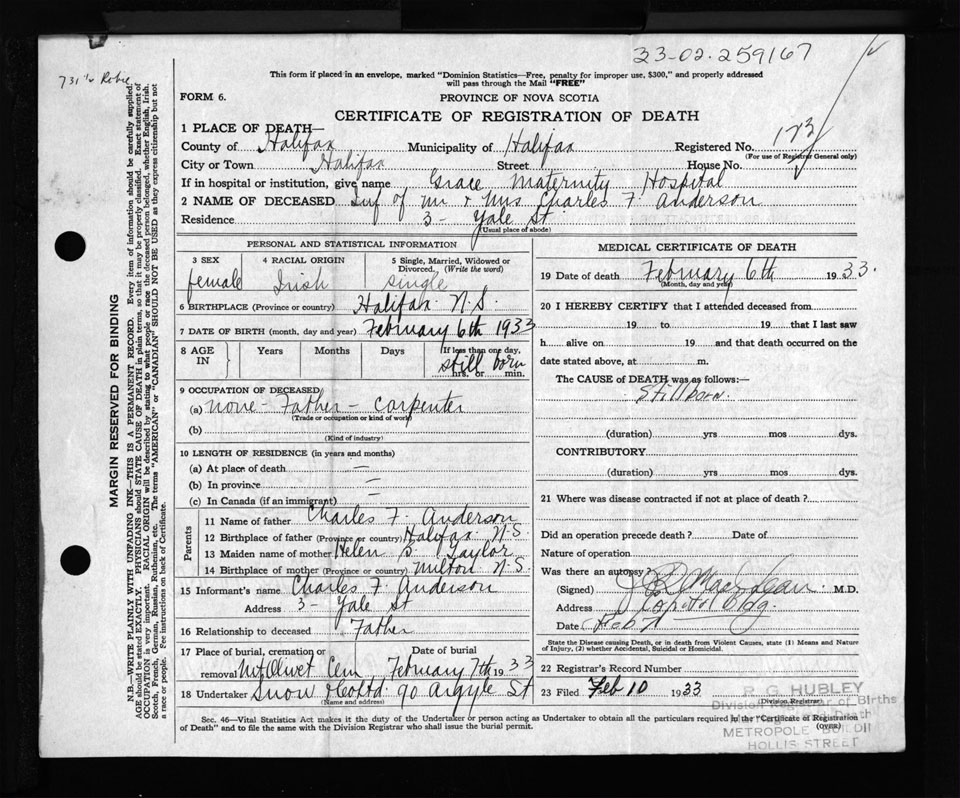 33-02-259167
731 1/2 Robie
This form if placed in an envelope, marked "Dominion Statistics—Free, penalty for improper use, $300," and properly addressed
will pass through the Mail "FREE"
FORM 6.
PROVINCE OF NOVA SCOTIA
CERTIFICATE OF REGISTRATION OF DEATH
1 PLACE OF DEATH—
County of Halifax Municipality of Halifax Registered No. 173
(For use of Registrar General only)
City or Town Halifax Street House No.
If in hospital or institution, give name Grace Maternity Hospital
2 NAME OF DECEASED Inf of Mr & Mrs Charles F. Anderson
Residence 3 - Yale St
(Usual place of abode)
PERSONAL AND STATISTICAL INFORMATION
3 SEX 4 RACIAL ORIGIN 5 Single, Married, Widowed or Divorced. (Write the word)
female Irish single
6 BIRTHPLACE (Province or country) Halifax N.S.
7 DATE OF BIRTH (month, day and year) February 6th 1933
8 AGE IN Years Months Days If less than one day,
still born
hrs. or min.
9 OCCUPATION OF DECEASED
(a) none - Father - carpenter
(Trade or occupation or kind of work)
(b)
(Kind of industry)
10 LENGTH OF RESIDENCE (in years and months)
(a) At place of death —
(b) In province —
(c) In Canada (if an immigrant) —
Parents
11 Name of father Charles F. Anderson
12 Birthplace of father (Province or country) Halifax N.S.
13 Maiden name of mother Helen S. Taylor
14 Birthplace of mother (Province or country) Milton N.S.
15 Informant's name Charles F Anderson
Address 3 - Yale St
16 Relationship to deceased Father
17 Place of burial, cremation or Date of burial
removal Mt Olivet Cem. February 7th 1933
18 Undertaker Snow & Co Ltd 90 Argyle St
(Name and address)
MEDICAL CERTIFICATE OF DEATH
19 Date of death February 6th 1933.
(Month, day and year)
20 I HEREBY CERTIFY that I attended deceased from
19 to 19 that I last saw
h alive on 19 and that death occurred on the
date stated above, at m.
The CAUSE of DEATH was as follows:—
Stillborn.
(duration) yrs mos dys.
CONTRIBUTORY
(duration) yrs mos dys.
21 Where was disease contracted if not at place of death?
Did an operation precede death? Date of
Nature of operation
Was there an autopsy?
(Signed) MacLean M.D.
Address Capitol Bldg.
Date Feb
State the Disease causing Death, or in death from Violent Causes, state (1) Means and Nature
of Injury, (2) whether Accidental, Suicidal or Homicidal.
22 Registrar's Record Number
23 Filed Feb 10 1933
(Division Registrar)
R. G. HUBLEY
Division Registrar of Births
and Death
METROPOLE BUILDI
HOLLIS STREET
Sec. 46—Vital Statistics Act makes it the duty of the Undertaker or person acting as Undertaker to obtain all the particulars required in the "Certificate of Registration
of Death" and to file the same with the Division Registrar who shall issue the burial permit. (OVER)
MARGIN RESERVED FOR BINDING
N.B.—WRITE PLAINLY WITH UNFADING INK—THIS IS A PERMANENT RECORD. Every item of information should be carefully supplied.
AGE should be stated EXACTLY. PHYSICIANS should STATE CAUSE OF DEATH in plain terms, so that it may be properly classified. Exact statement of
OCCUPATION is very important. RACIAL ORIGIN will be described by stating to what people or race the deceased person belonged, whether English, Irish,
Scotch, French, German, Russian, Ruthenian, etc. The terms "AMERICAN" or "CANADIAN" SHOULD NOT BE USED as they express citizenship but not
a race or people. Fee instructions on back of Certificate.